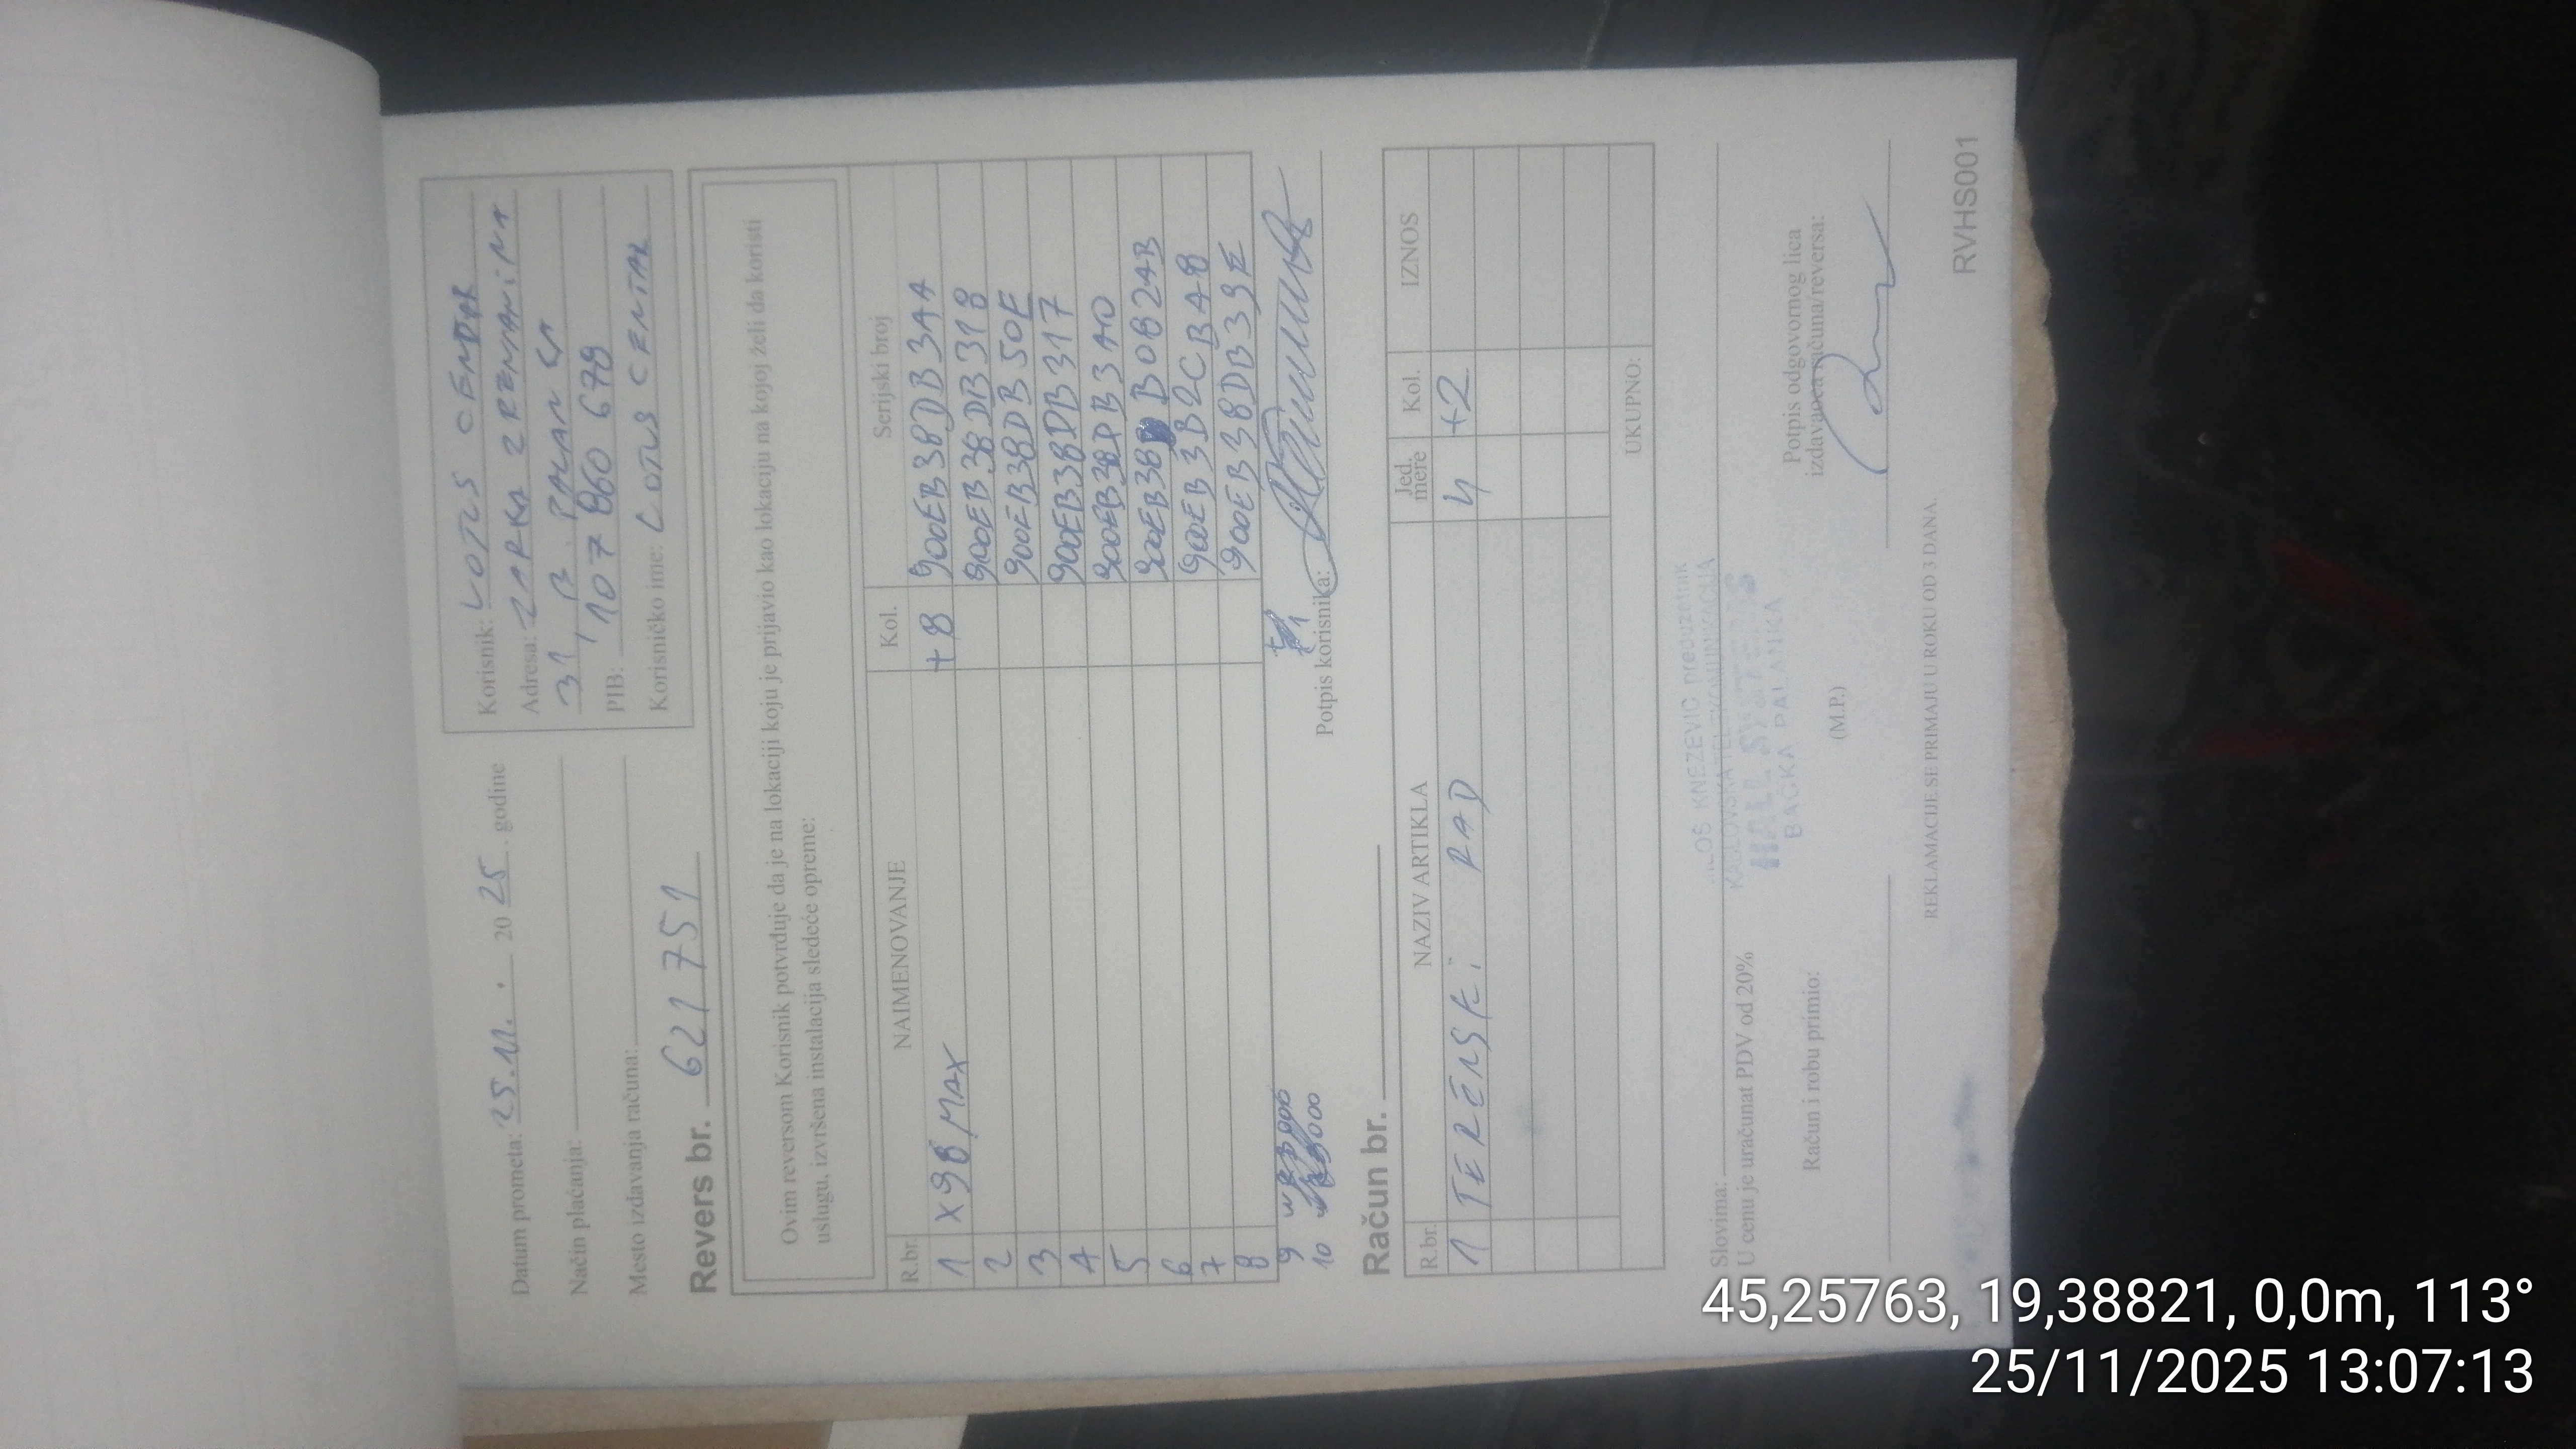 Datum prometa: 25.11. . 20 25 . godine
Način plaćanja:
Mesto izdavanja računa:
Korisnik: LOTUS CENTAR
Adresa: ŽARKA ZRENANINA
31, B. PALANKA
PIB: 107 860 678
Korisničko ime: LOTUS CENTAR
Revers br. 621751
Ovim reversom Korisnik potvrđuje da je na lokaciji koju je prijavio kao lokaciju na kojoj želi da koristi
uslugu, izvršena instalacija sledeće opreme:
R.br. NAIMENOVANJE Kol. Serijski broj
1 X98 MAX +8 900EB38DB3AA
2 900EB38DB318
3 900EB38DB50E
4 900EB38DB317
5 900EB38DB3A0
6 900EB38 B0B2AB
7 900EB3B2CBA8
8 900EB38DB39E
9
10
Potpis korisnika:
Račun br.
R.br. NAZIV ARTIKLA Jed. mere Kol. IZNOS
1 TERENSKI RAD h +2
UKUPNO:
Slovima:
U cenu je uračunat PDV od 20%
MILOŠ KNEŽEVIĆ preduzetnik
KABLOVSKA TELEKOMUNIKACIJA
BAČKA PALANKA
Račun i robu primio:
(M.P.)
Potpis odgovornog lica
izdavaoca računa/reversa:
REKLAMACIJE SE PRIMAJU U ROKU OD 3 DANA.
RVHS001
45,25763, 19,38821, 0,0m, 113°
25/11/2025 13:07:13